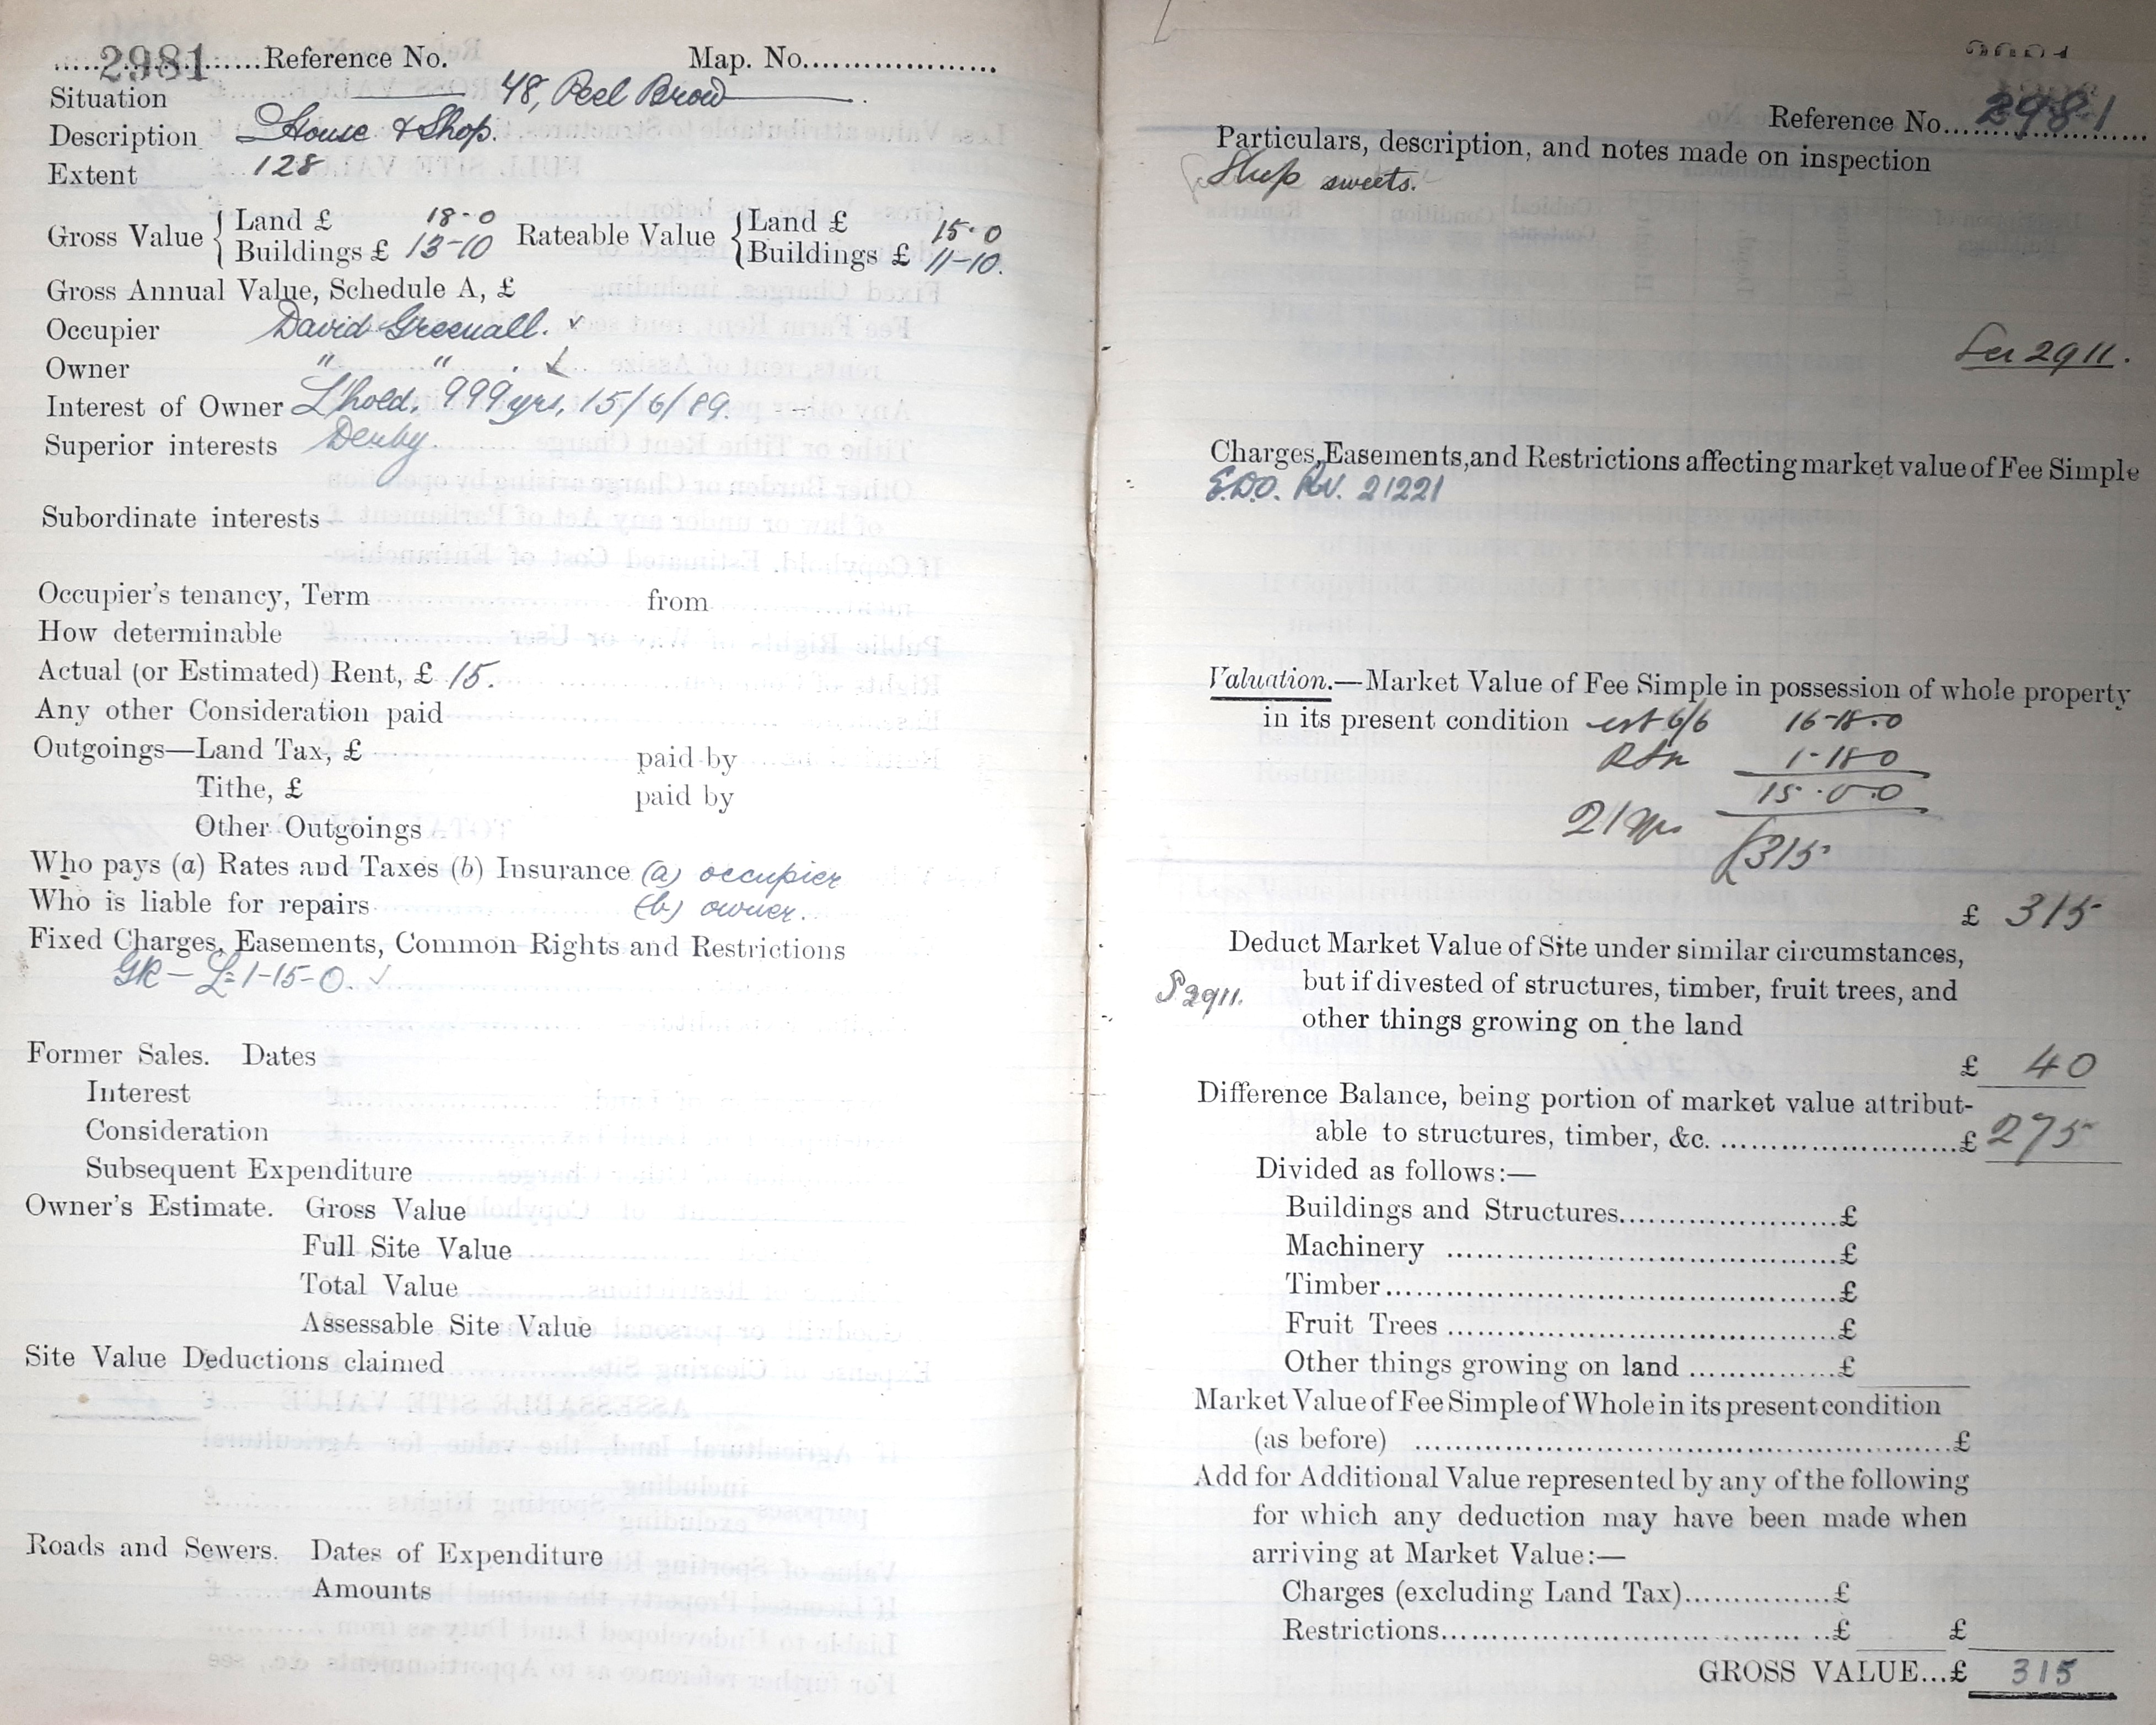 2981 Reference No. Map. No.
Situation 48, Peel Brow
Description House & Shop.
Extent 128
Gross Value { Land £ 18-0 Rateable Value { Land £ 15-0
Buildings £ 13-10 Buildings £ 11-10.
Gross Annual Value, Schedule A, £
Occupier David Greenall.
Owner " " .
Interest of Owner L'hold. 999 yrs, 15/6/89.
Superior interests Derby.
Subordinate interests
Occupier's tenancy, Term from
How determinable
Actual (or Estimated) Rent, £ 15.
Any other Consideration paid
Outgoings—Land Tax, £ paid by
Tithe, £ paid by
Other Outgoings
Who pays (a) Rates and Taxes (b) Insurance (a) occupier
Who is liable for repairs (b) owner.
Fixed Charges, Easements, Common Rights and Restrictions
GR — £1-15-0.
Former Sales. Dates
Interest
Consideration
Subsequent Expenditure
Owner's Estimate. Gross Value
Full Site Value
Total Value
Assessable Site Value
Site Value Deductions claimed
Roads and Sewers. Dates of Expenditure
Amounts
Reference No. 2981
Particulars, description, and notes made on inspection
Shop sweets.
2911.
Charges, Easements, and Restrictions affecting market value of Fee Simple
E.D.O. 21221
Valuation.—Market Value of Fee Simple in possession of whole property
in its present condition est 6/6 16-18-0
1-18-0
15-0-0
21 yrs £315
£ 315
Deduct Market Value of Site under similar circumstances,
but if divested of structures, timber, fruit trees, and
S 2911.
other things growing on the land
£ 40
Difference Balance, being portion of market value attribut-
able to structures, timber, &c. £ 275
Divided as follows:—
Buildings and Structures £
Machinery £
Timber £
Fruit Trees £
Other things growing on land £
Market Value of Fee Simple of Whole in its present condition
(as before) £
Add for Additional Value represented by any of the following
for which any deduction may have been made when
arriving at Market Value:—
Charges (excluding Land Tax) £
Restrictions £ £
GROSS VALUE...£ 315